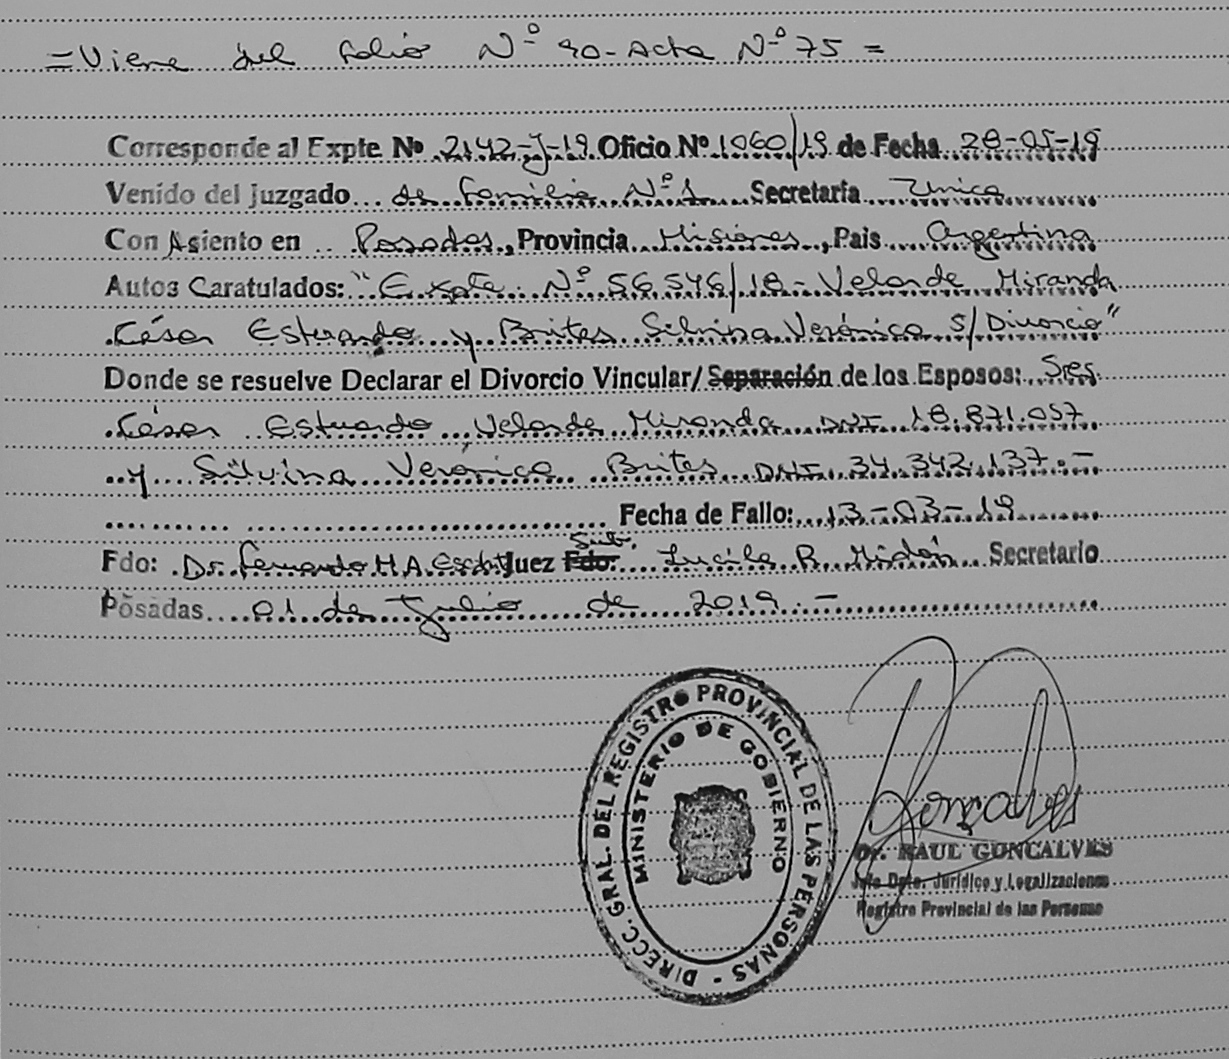 =Viene del folio Nº 90-Acta Nº 75=
Corresponde al Expte Nº 2142-J-19 Oficio Nº 1060/19 de Fecha 28-05-19
Venido del Juzgado de Familia Nº 1 Secretaría Unica
Con Asiento en Posadas, Provincia Misiones, Pais Argentina
Autos Caratulados: "Expte. Nº 56546/18 - Velarde Miranda
César Estuardo y Brites Silvina Verónica S/ Divorcio"
Donde se resuelve Declarar el Divorcio Vincular/ Separación de los Esposos: Sres.
César Estuardo Velarde Miranda DNI 18.871.057
y Silvina Verónica Brites DNI. 34.342.137.-
Fecha de Fallo: 13-03-19
Sub.
Fdo: Dr. Fernando H A. Juez Fdo: Lucila R. Midón Secretario
Posadas 01 de Julio de 2019.-
DIRECC. GRAL. DEL REGISTRO PROVINCIAL DE LAS PERSONAS -
MINISTERIO DE GOBIERNO
Gonçalves
Dr. RAUL GONCALVES
Jefe Dpto. Jurídico y Legalizaciones
Registro Provincial de las Personas